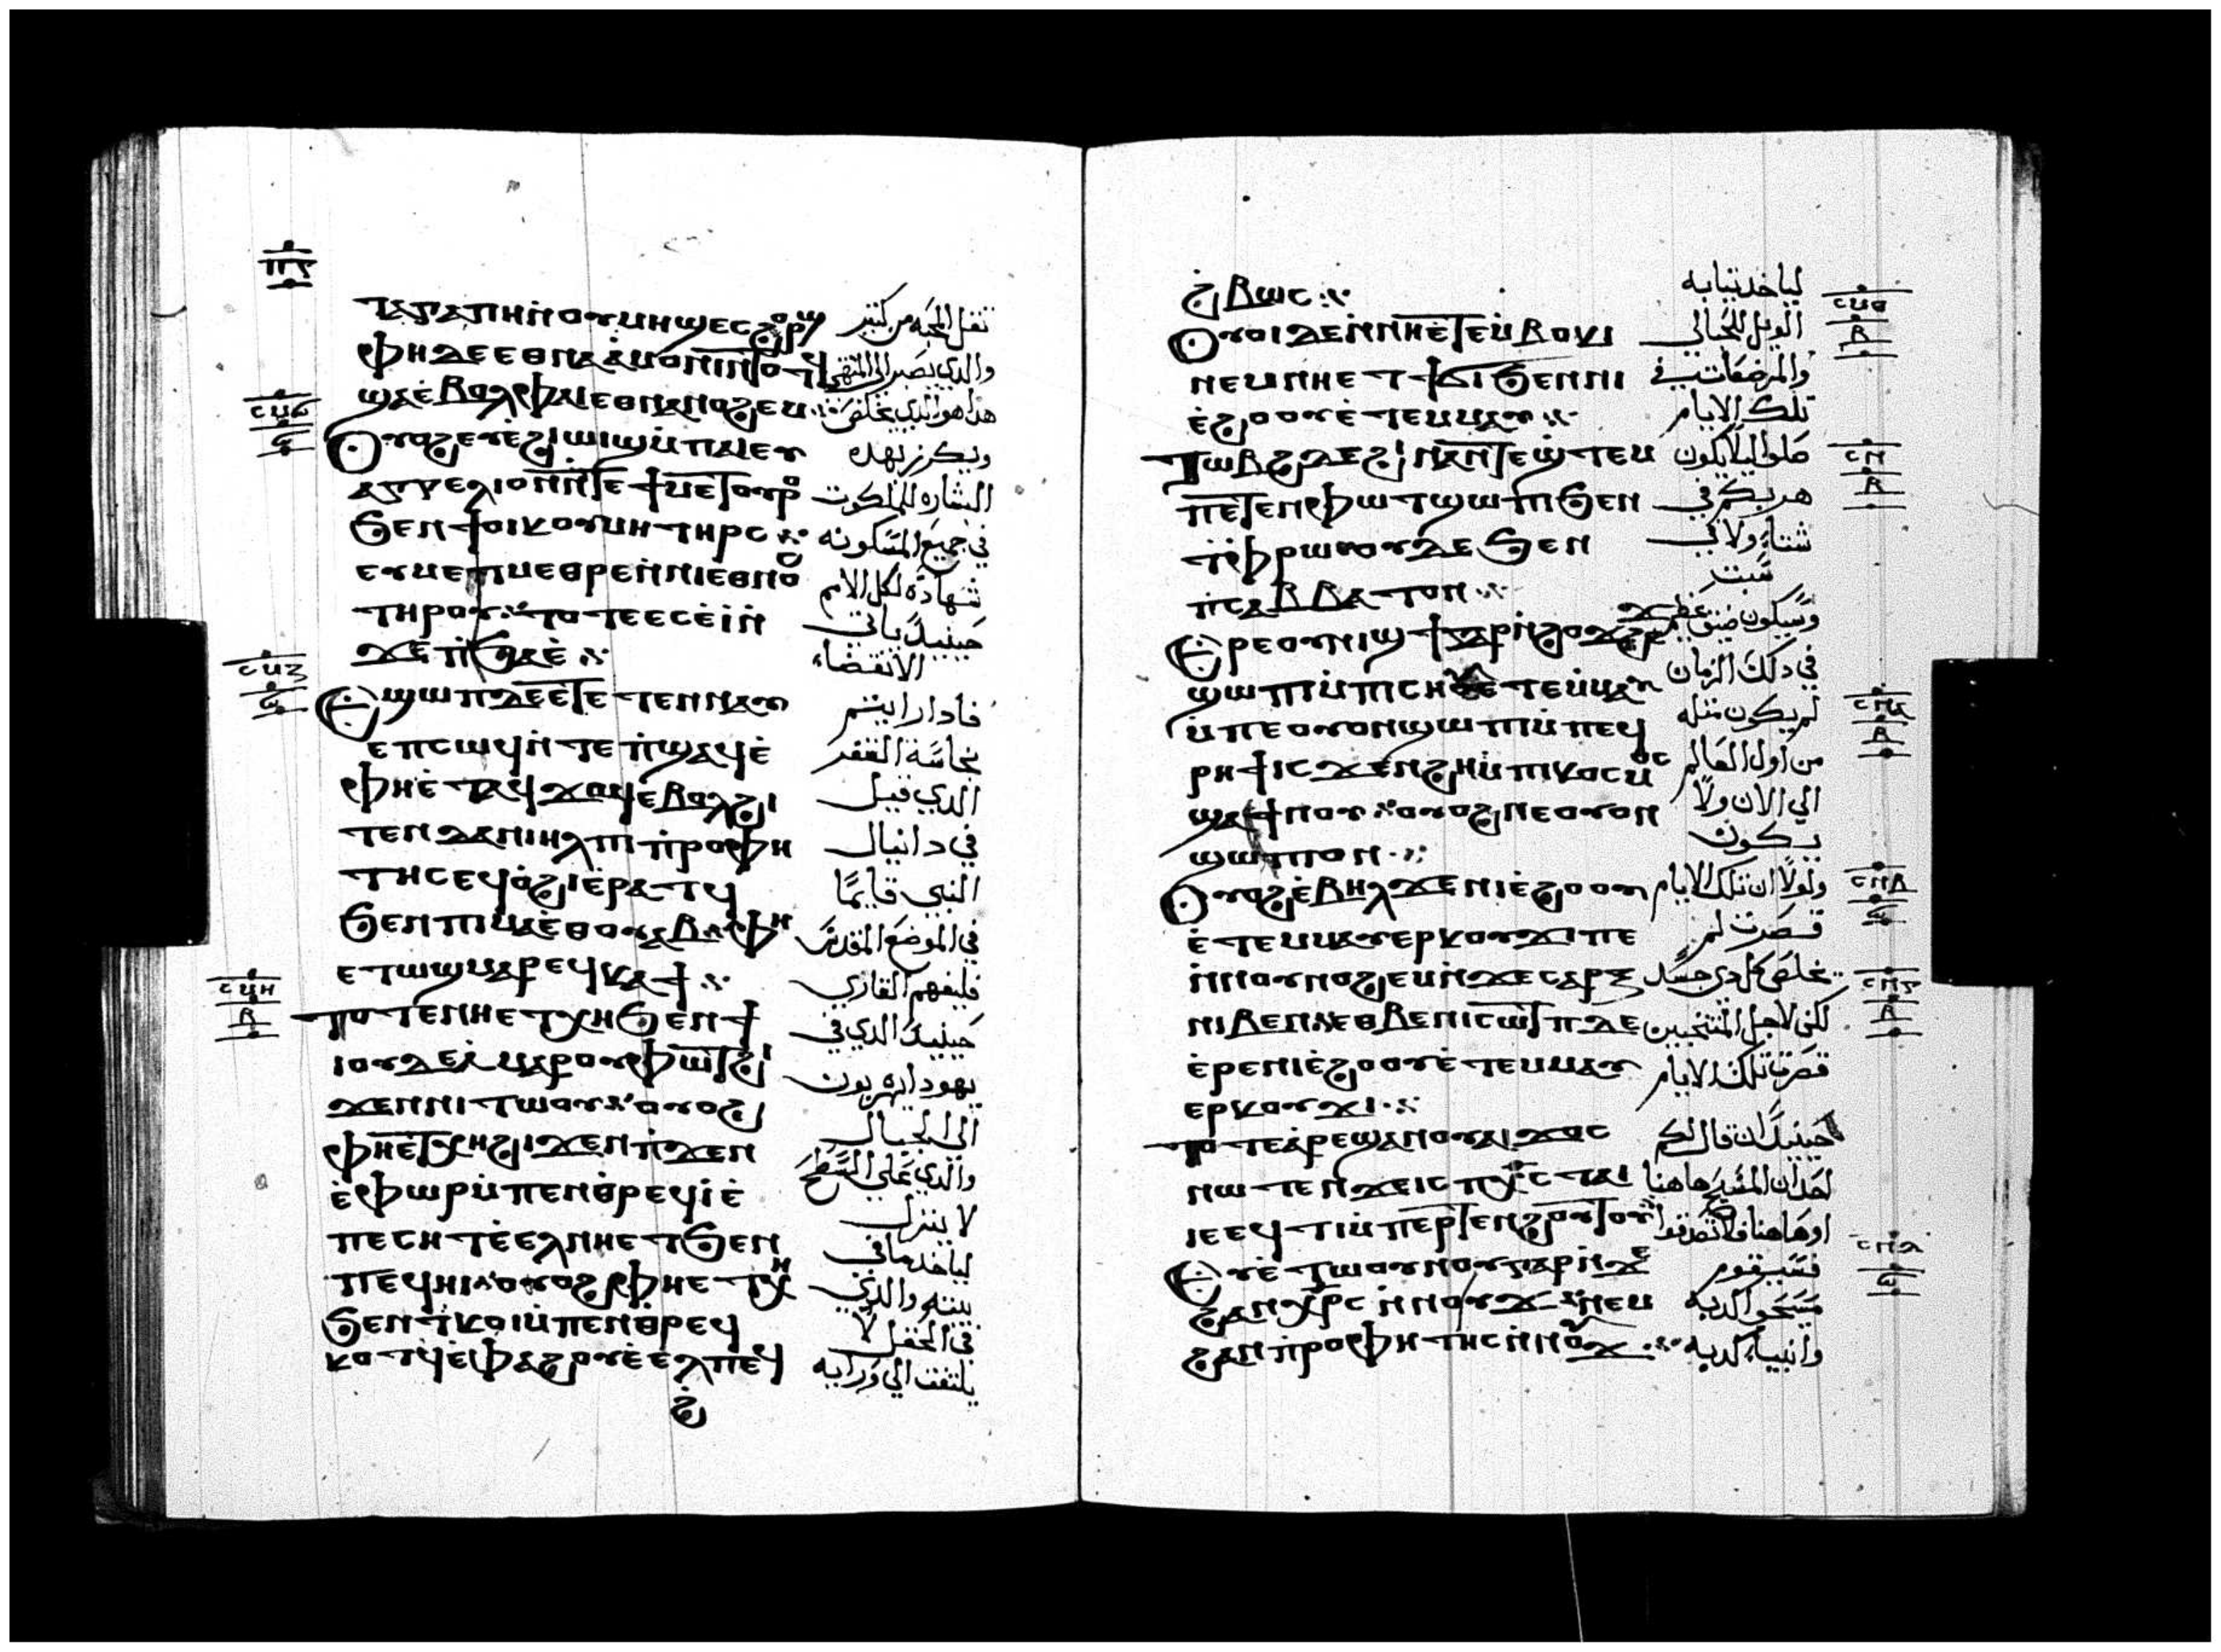 ⲡⲋ
ⲧⲁⲅⲁⲡⲏ ⲛⲟⲩⲙⲏϣ ⲉⲥϩⲟⲣϣ تقل المحبه من كتير
ⲫⲏ ⲇⲉ ⲉⲑⲛⲁⲁⲙⲟⲛⲓ ⲛⲧⲟⲧϥ والدي يصبر الي المنتهي
ϣⲁⲉⲃⲟⲗ ⲫⲁⲓ ⲉⲑⲛⲁⲛⲟϩⲉⲙ هدا هو الدي يخلص
ⲥⲙⲋ
ⲋ
ⲟⲩⲟϩ ⲉⲩⲉϩⲓⲱⲓϣ ⲙⲡⲁⲓⲉⲩ ويكرز بهده
ⲁⲅⲅⲉⲗⲓⲟⲛ ⲛⲧⲉ ϯⲙⲉⲧⲟⲩⲣⲟ البشاره للملكوت
ϧⲉⲛ ϯⲟⲓⲕⲟⲩⲙⲏ ⲧⲏⲣⲥ في جميع المسكونه
ⲉⲩⲙⲉⲧⲙⲉⲑⲣⲉ ⲛⲛⲓⲉⲑⲛⲟ شهادة لكل الامم
ⲧⲏⲣⲟⲩ ⲧⲟⲧⲉ ⲉⲥⲉⲓ ⲛ حينيد ياتي
ϫⲉ ϯϧⲁⲉ الانقضاء
ⲥⲙⲍ
ⲋ
ⲉϣⲱⲡ ⲇⲉ ⲉⲧⲉⲧⲉⲛⲛⲁⲩ فادا رايتم
ⲉⲡⲥⲱϥ ⲛⲧⲉ ⲡϣⲁϥⲉ نجاسة القفر
ⲫⲏ ⲉⲧⲁϥϫⲟϥ ⲉⲃⲟⲗ ϩⲓ الدي قيل
ⲧⲉⲛ ⲇⲁⲛⲓⲏⲗ ⲡⲓⲡⲣⲟⲫⲏ في دانيال
ⲧⲏⲥ ⲉϥⲟϩⲓ ⲉⲣⲁⲧϥ النبي قايمًا
ϧⲉⲛ ⲡⲓⲙⲁ ⲉⲑⲟⲩⲁⲃ ⲫⲏ في الموضع المقدس
ⲉⲧⲱϣ ⲙⲁⲣⲉϥⲕⲁϯ فليفهم القاري
ⲥⲙⲏ
ⲃ
ⲧⲟⲧⲉ ⲛⲏ ⲉⲧⲭⲏ ϧⲉⲛ ϯ حينيد الدي في
ⲓⲟⲩⲇⲉⲁ ⲙⲁⲣⲟⲩⲫⲱⲧ ϩⲓ يهودا يهربون
ϫⲉⲛ ⲛⲓⲧⲱⲟⲩ ⲟⲩⲟϩ الي الجبال
ⲫⲏ ⲉⲧⲭⲏ ϩⲓϫⲉⲛ ⲡϫⲉⲛ والدي علي السطح
ⲉⲫⲱⲣ ⲙⲡⲉⲛⲑⲣⲉϥⲓ ⲉ لا ينزل
ⲡⲉⲥⲏⲧ ⲉⲉⲗ ⲛⲏ ⲉⲧϧⲉⲛ لياخد ما في
ⲡⲉϥⲏⲓ ⲟⲩⲟϩ ⲫⲏ ⲉⲧⲭⲏ بيته والدي
ϧⲉⲛ ⲧⲕⲟⲓ ⲙⲡⲉⲛⲑⲣⲉϥ في الحقل لا
ⲕⲟⲧϥ ⲉⲫⲁϩⲟⲩ ⲉⲉⲗ ⲡⲉϥ يلتفت الي ورايه
ϩ
ϩⲃⲱⲥ لياخد تيابه
ⲥⲙⲑ
ⲃ
ⲟⲩⲟⲓ ⲇⲉ ⲛⲛⲏ ⲉⲧⲉⲙⲃⲟⲕⲓ الويل للحبالي
ⲛⲉⲙ ⲛⲏ ⲉⲧϯϭⲓ ϧⲉⲛ ⲛⲓ والمرضعات في
ⲉϩⲟⲟⲩ ⲉⲧⲉⲙⲙⲁⲩ تلك الايام
ⲥⲛ
ⲃ
ⲧⲱⲃϩ ⲇⲉ ϩⲓⲛⲁ ⲛⲧⲉϣⲧⲉⲙ صلوا ليلا يكون
ⲡⲉⲧⲉⲛⲫⲱⲧ ϣⲱⲡⲓ ϧⲉⲛ هربكم في
ⲧⲫⲣⲱ ⲟⲩⲇⲉ ϧⲉⲛ شتاء ولا في
ⲡⲥⲁⲃⲃⲁⲧⲟⲛ سبت
ⲉⲣⲉ ⲟⲩⲛⲓϣϯ ⲅⲁⲣ ⲛϩⲟϫϩⲉϫ وسيكون ضيق عظيم
ϣⲱⲡⲓ ⲙⲡⲓⲥⲏⲟⲩ ⲉⲧⲉⲙⲙⲁⲩ في دلك الزمان
ⲥⲛⲁ
ⲃ
ⲙⲡⲉ ⲟⲩⲟⲛ ϣⲱⲡⲓ ⲙⲡⲉϥ لم يكون متله
ⲣⲏϯ ⲓⲥϫⲉⲛ ϩⲏ ⲙⲡⲓⲕⲟⲥⲙⲟⲥ من اول العالم
ϣⲁ ϯⲛⲟⲩ ⲟⲩⲟϩ ⲛⲉ ⲟⲩⲟⲛ الي الان ولا
ϣⲱⲡⲓ ⲟⲛ يكون
ⲥⲛⲃ
ⲋ
ⲟⲩⲟϩ ⲉⲃⲏⲗ ϫⲉ ⲛⲓⲉϩⲟⲟⲩ ولولا ان تلك الايام
ⲉⲧⲉⲙⲙⲁⲩ ⲉⲣⲕⲟⲩϫⲓ ⲡⲉ قصرت لم
ⲥⲛⲅ
ⲃ
ⲛⲛⲟⲩⲛⲟϩⲉⲙ ⲛϫⲉ ⲥⲁⲣⲝ يخلص كل دي جسد
ⲛⲓⲃⲉⲛ ⲉⲑⲃⲉ ⲛⲓⲥⲱⲧⲡ ⲇⲉ لكن لاجل المنتخبين
ⲉⲣⲉ ⲛⲓⲉϩⲟⲟⲩ ⲉⲧⲉⲙⲙⲁⲩ قصرت تلك الايام
ⲉⲣⲕⲟⲩϫⲓ
ⲧⲟⲧⲉ ⲁⲣⲉϣⲁⲛ ⲟⲩⲁⲓ ϫⲟⲥ حينيد ان قال لكم
ⲛⲱⲧⲉⲛ ϫⲉ ⲓⲥ ⲡⲭⲥ ⲧⲁⲓ احد ان المسيح هاهنا
ⲓⲉ ⲉϥⲧⲓ ⲙⲡⲉⲣⲧⲉⲛϩⲟⲩⲧⲟⲩ او هاهنا فلا تصدقوا
ⲥⲛⲇ
ⲋ
ⲉⲩⲉⲧⲱⲟⲩⲛⲟⲩ ⲅⲁⲣ ⲛϫⲉ فسيقوم
ϩⲁⲛⲭⲣⲥ ⲛⲛⲟⲩϫ ⲛⲉⲙ مسيحوا كدبه
ϩⲁⲛⲡⲣⲟⲫⲏⲧⲏⲥ ⲛⲛⲟⲩϫ وانبياء كدبه